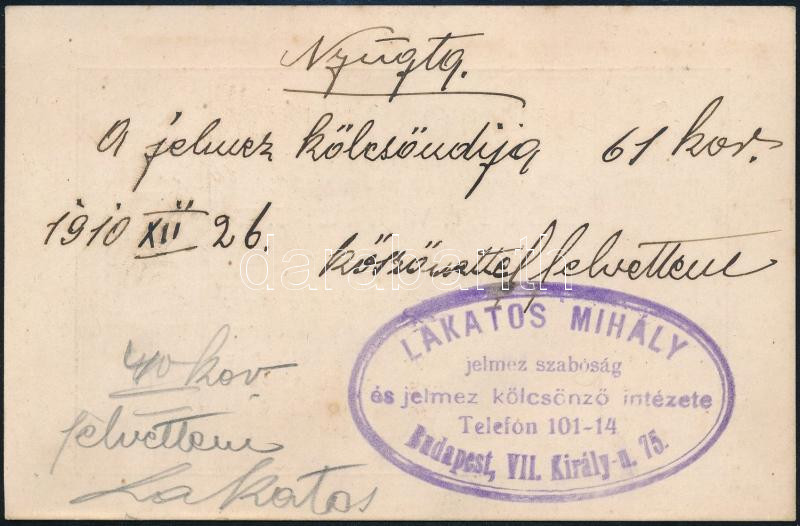 Nyugta.
A jelmez kölcsöndija 61 kor.
1910 XII 26.
köszönettel felvettem
LAKATOS MIHÁLY
jelmez szabóság
és jelmez kölcsönző intézete
Telefón 101-14
Budapest, VII. Király-u. 75.
40 kor
felvettem
Lakatos
darabanth